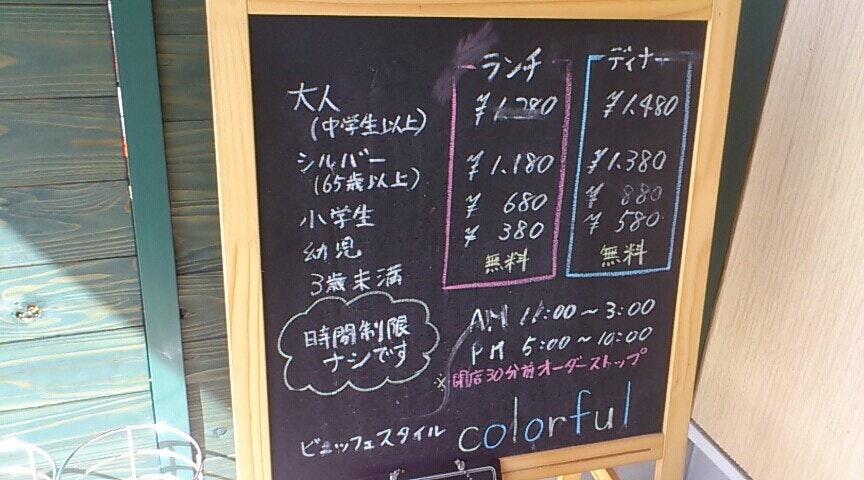 ランチ ディナー
大人 ¥1,280 ¥1,480
(中学生以上)
シルバー ¥1,180 ¥1,380
(65歳以上)
小学生 ¥ 680 ¥ 880
幼児 ¥ 380 ¥ 580
3歳未満 無料 無料
時間制限
ナシです
AM 11:00～3:00
PM 5:00～10:00
※閉店30分前オーダーストップ
ビュッフェスタイル colorful